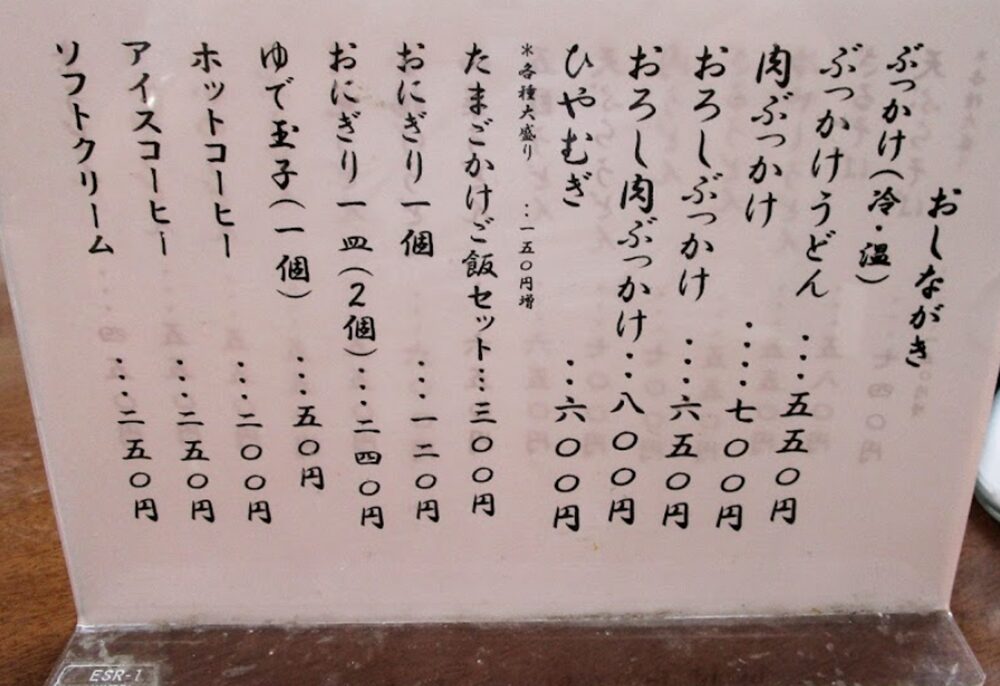 おしながき
ぶっかけ(冷・温)
ぶっかけうどん ････五五〇円
肉ぶっかけ ････七〇〇円
おろしぶっかけ ････六五〇円
おろし肉ぶっかけ･･･八〇〇円
ひやむぎ ･･･六〇〇円
＊各種大盛り ･･･一五〇円増
たまごかけご飯セット･･･三〇〇円
おにぎり一個 ･･･一二〇円
おにぎり一皿(2個)･･･二四〇円
ゆで玉子(一個) ･･･五〇円
ホットコーヒー ･･･二〇〇円
アイスコーヒー ･･･二五〇円
ソフトクリーム ･･･二五〇円
ESR-1